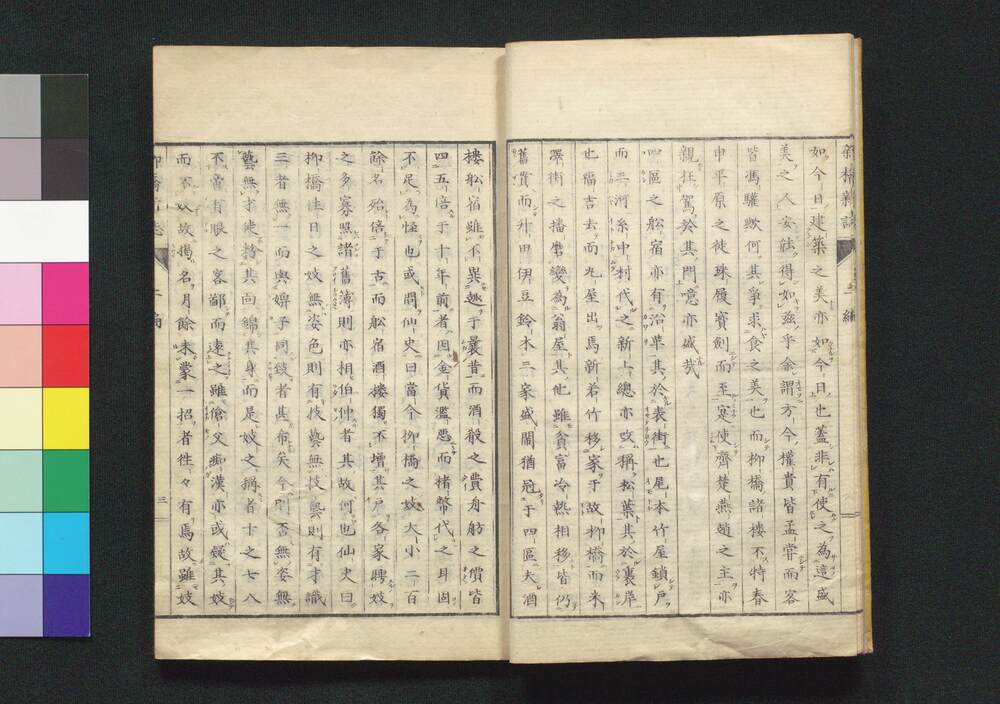 柳橋新誌　二編
如今日建築之美亦如今日也蓋非有使之為這盛
美之人安能得如茲乎余謂方今權貴皆孟嘗而客
皆馮驩歟何其爭求食之美也而柳橋諸樓不特春
申平原之徒珠履寶劍而至寔使齊楚燕趙之主亦
親枉駕於其門噫亦盛哉
四區之船宿亦有沿革其於表街也尾本竹屋鎖戸
而三河糸中村代之新上總亦改稱松葉其於裏岸
也冨吉去而丸屋出馬新若竹移家于故柳橋而米
澤街之播磨變為翁屋其他雖貧富冷熱相移皆仍
舊貫而升田伊豆鈴木三家盛鬧猶冠于四區大酒
樓船宿雖不異趣于曩昔而酒殽之價舟舫之價皆
四五倍于十年前者因金貨濫悪而楮幣代之耳固
不足為怪也或問仙史曰當今柳橋之妓大小二百
餘名殆倍于古而船宿酒樓獨不増其戸各家聘妓
之多寡照諸舊簿則亦相伯仲者其故何也仙史曰
柳橋往日之妓無姿色則有技藝無技藝則有才識
三者無一而與婢子同伎者甚希矣今則否無姿無
藝無才徒粉其面綿其身而是妓之稱者十之七八
不啻有眼之客鄙而遠之雖傖父痴漢亦或疑其妓
而不妓故揭名月餘未蒙一招者往々有焉故雖妓
柳橋新誌　二編　三